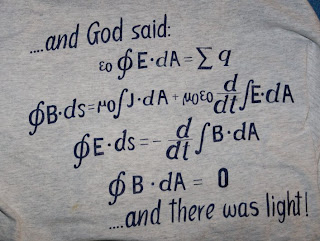 ....and God said:
εo∮E·dA=Σq
∮B·ds=μo∫J·dA+μoεo d/dt∫E·dA
∮E·ds=-d/dt∫B·dA
∮B·dA= 0
....and there was light!